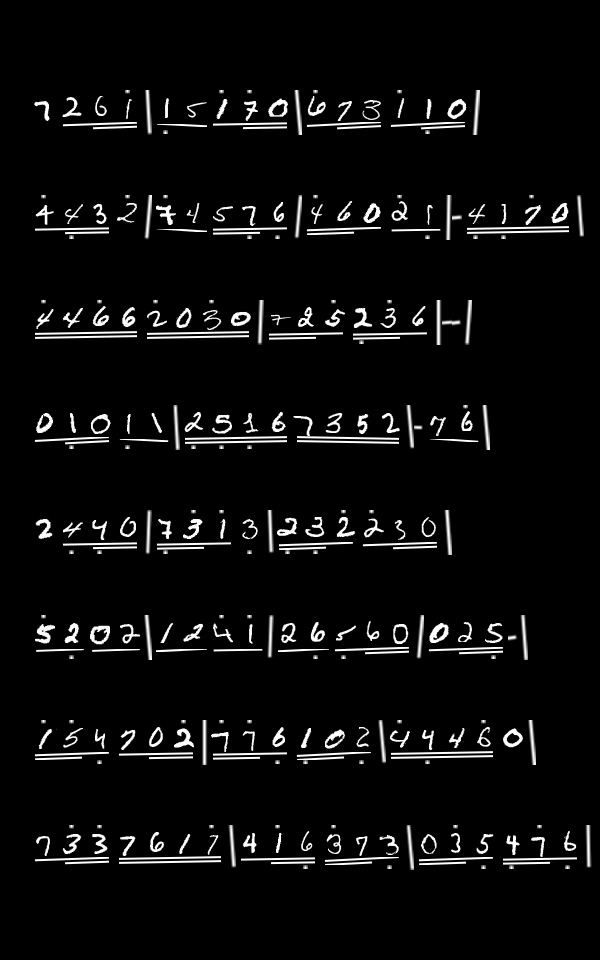 7 2 6 1 | 1 5 1 7 0 | 6 7 3 1 1 0 |
4 4 3 2 | 7 4 5 7 6 | 4 6 0 2 1 | - 4 1 7 0 |
4 4 6 6 2 0 3 0 | 7 2 5 2 3 6 | - |
0 1 0 1 1 | 2 5 1 6 7 3 5 2 | - 7 6 |
2 4 4 0 | 7 3 1 3 | 2 3 2 2 3 0 |
5 2 0 2 | 1 2 4 1 | 2 6 5 6 0 | 0 2 5 - |
1 5 4 7 0 2 | 7 7 6 1 0 2 | 4 4 4 6 0 |
7 3 3 7 6 1 7 | 4 1 6 3 7 3 | 0 3 5 4 7 6 |